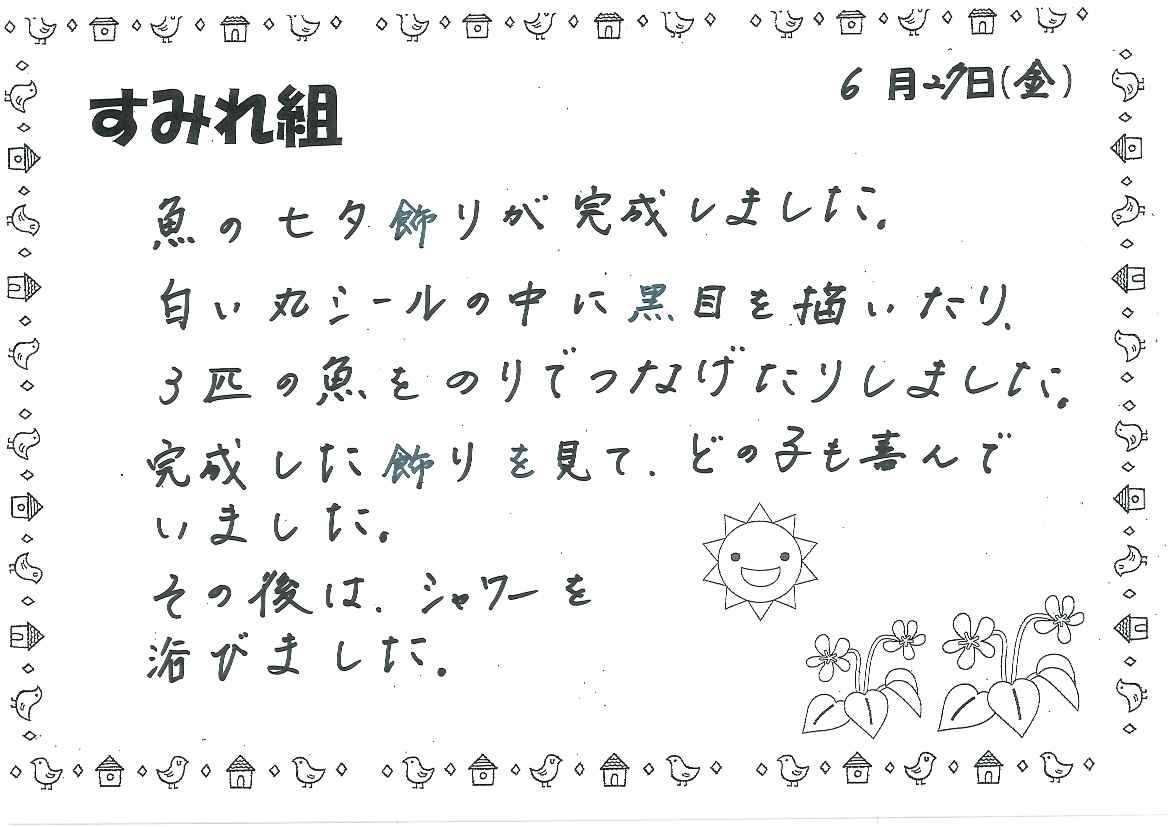 すみれ組
6月27日(金)
魚の七夕飾りが完成しました。
白い丸シールの中に黒目を描いたり、
3匹の魚をのりでつなげたりしました。
完成した飾りを見て、どの子も喜んで
いました。
その後は、シャワーを
浴びました。